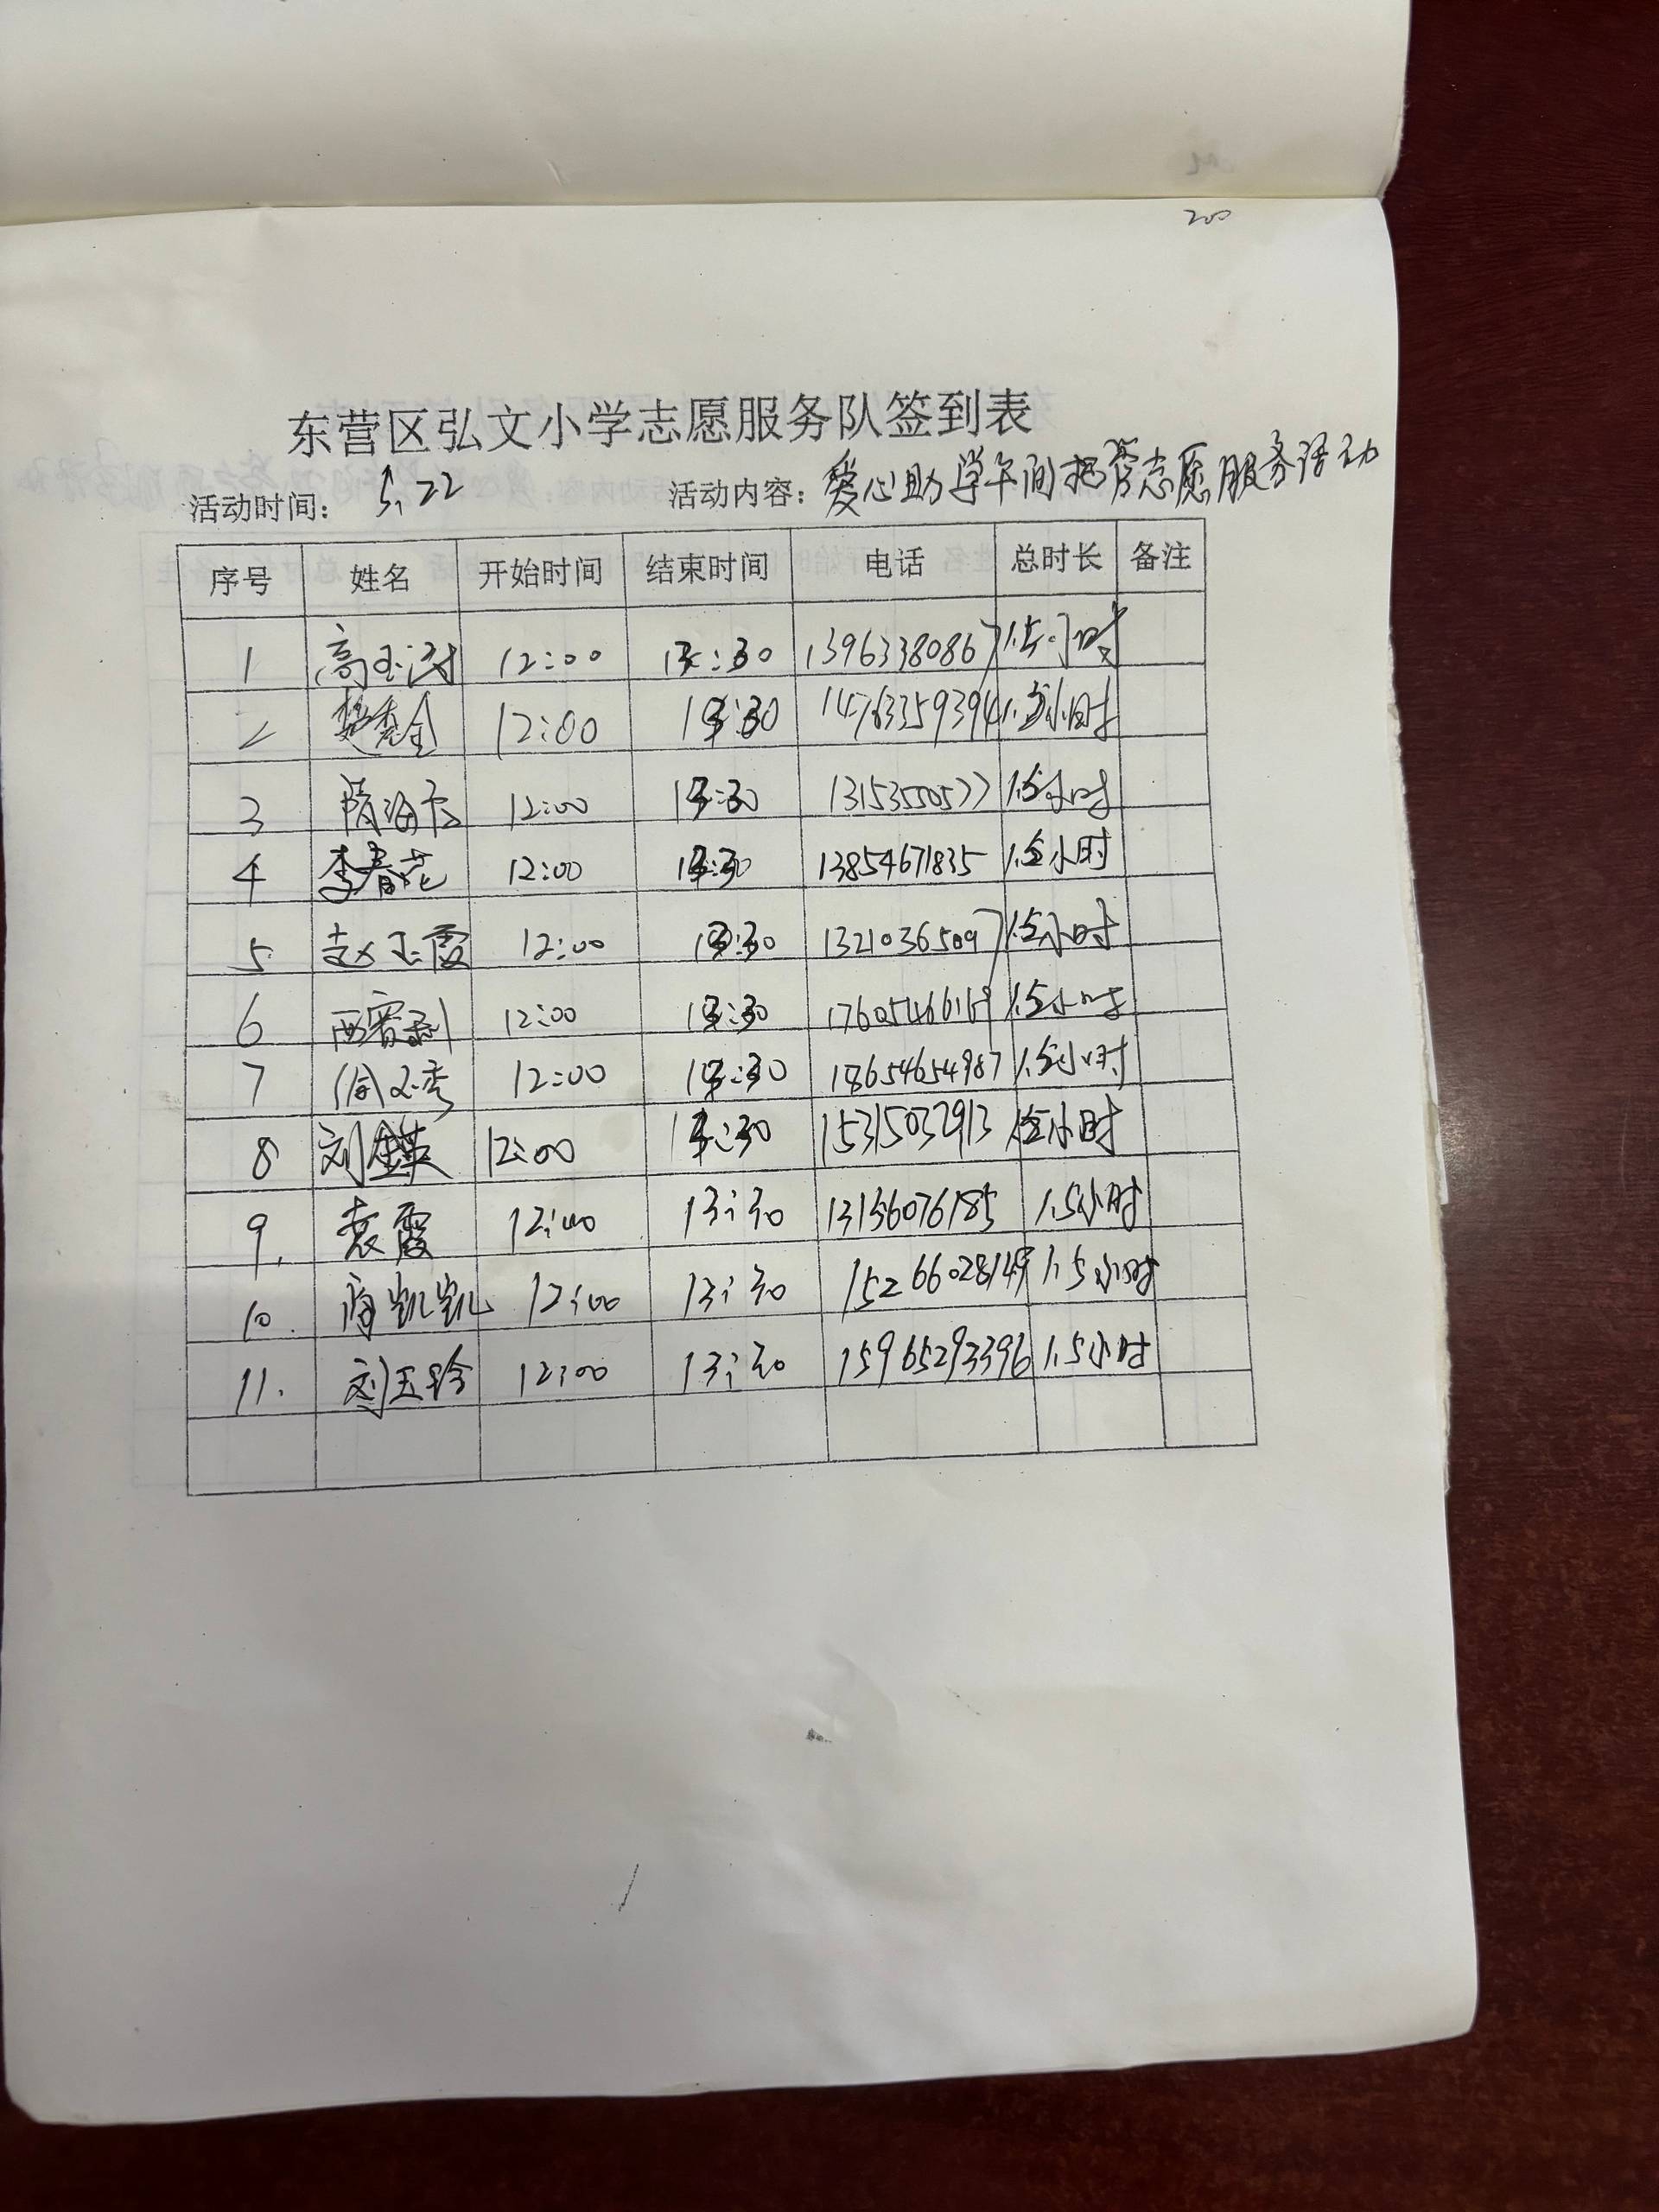 200
东营区弘文小学志愿服务队签到表
活动时间: 5.22 活动内容: 爱心助学午间托管志愿服务活动
序号 姓名 开始时间 结束时间 电话 总时长 备注
1 高玉 12:00 13:30 13963380867 1.5小时
2 楚秀金 12:00 13:30 14763359394 1.5小时
3 隋海 12:00 13:30 13153550577 1.5小时
4 李春花 12:00 13:30 13854671835 1.5小时
5 赵玉霞 12:00 13:30 13210365097 1.5小时
6 12:00 13:30 1.5小时
7 徐玉秀 12:00 13:30 18654654987 1.5小时
8 刘金英 12:00 13:30 15315032913 1.5小时
9. 袁霞 12:00 13:30 13156076185 1.5小时
10. 凯凯 12:00 13:30 15266028149 1.5小时
11. 刘玉玲 12:00 13:30 15965293396 1.5小时